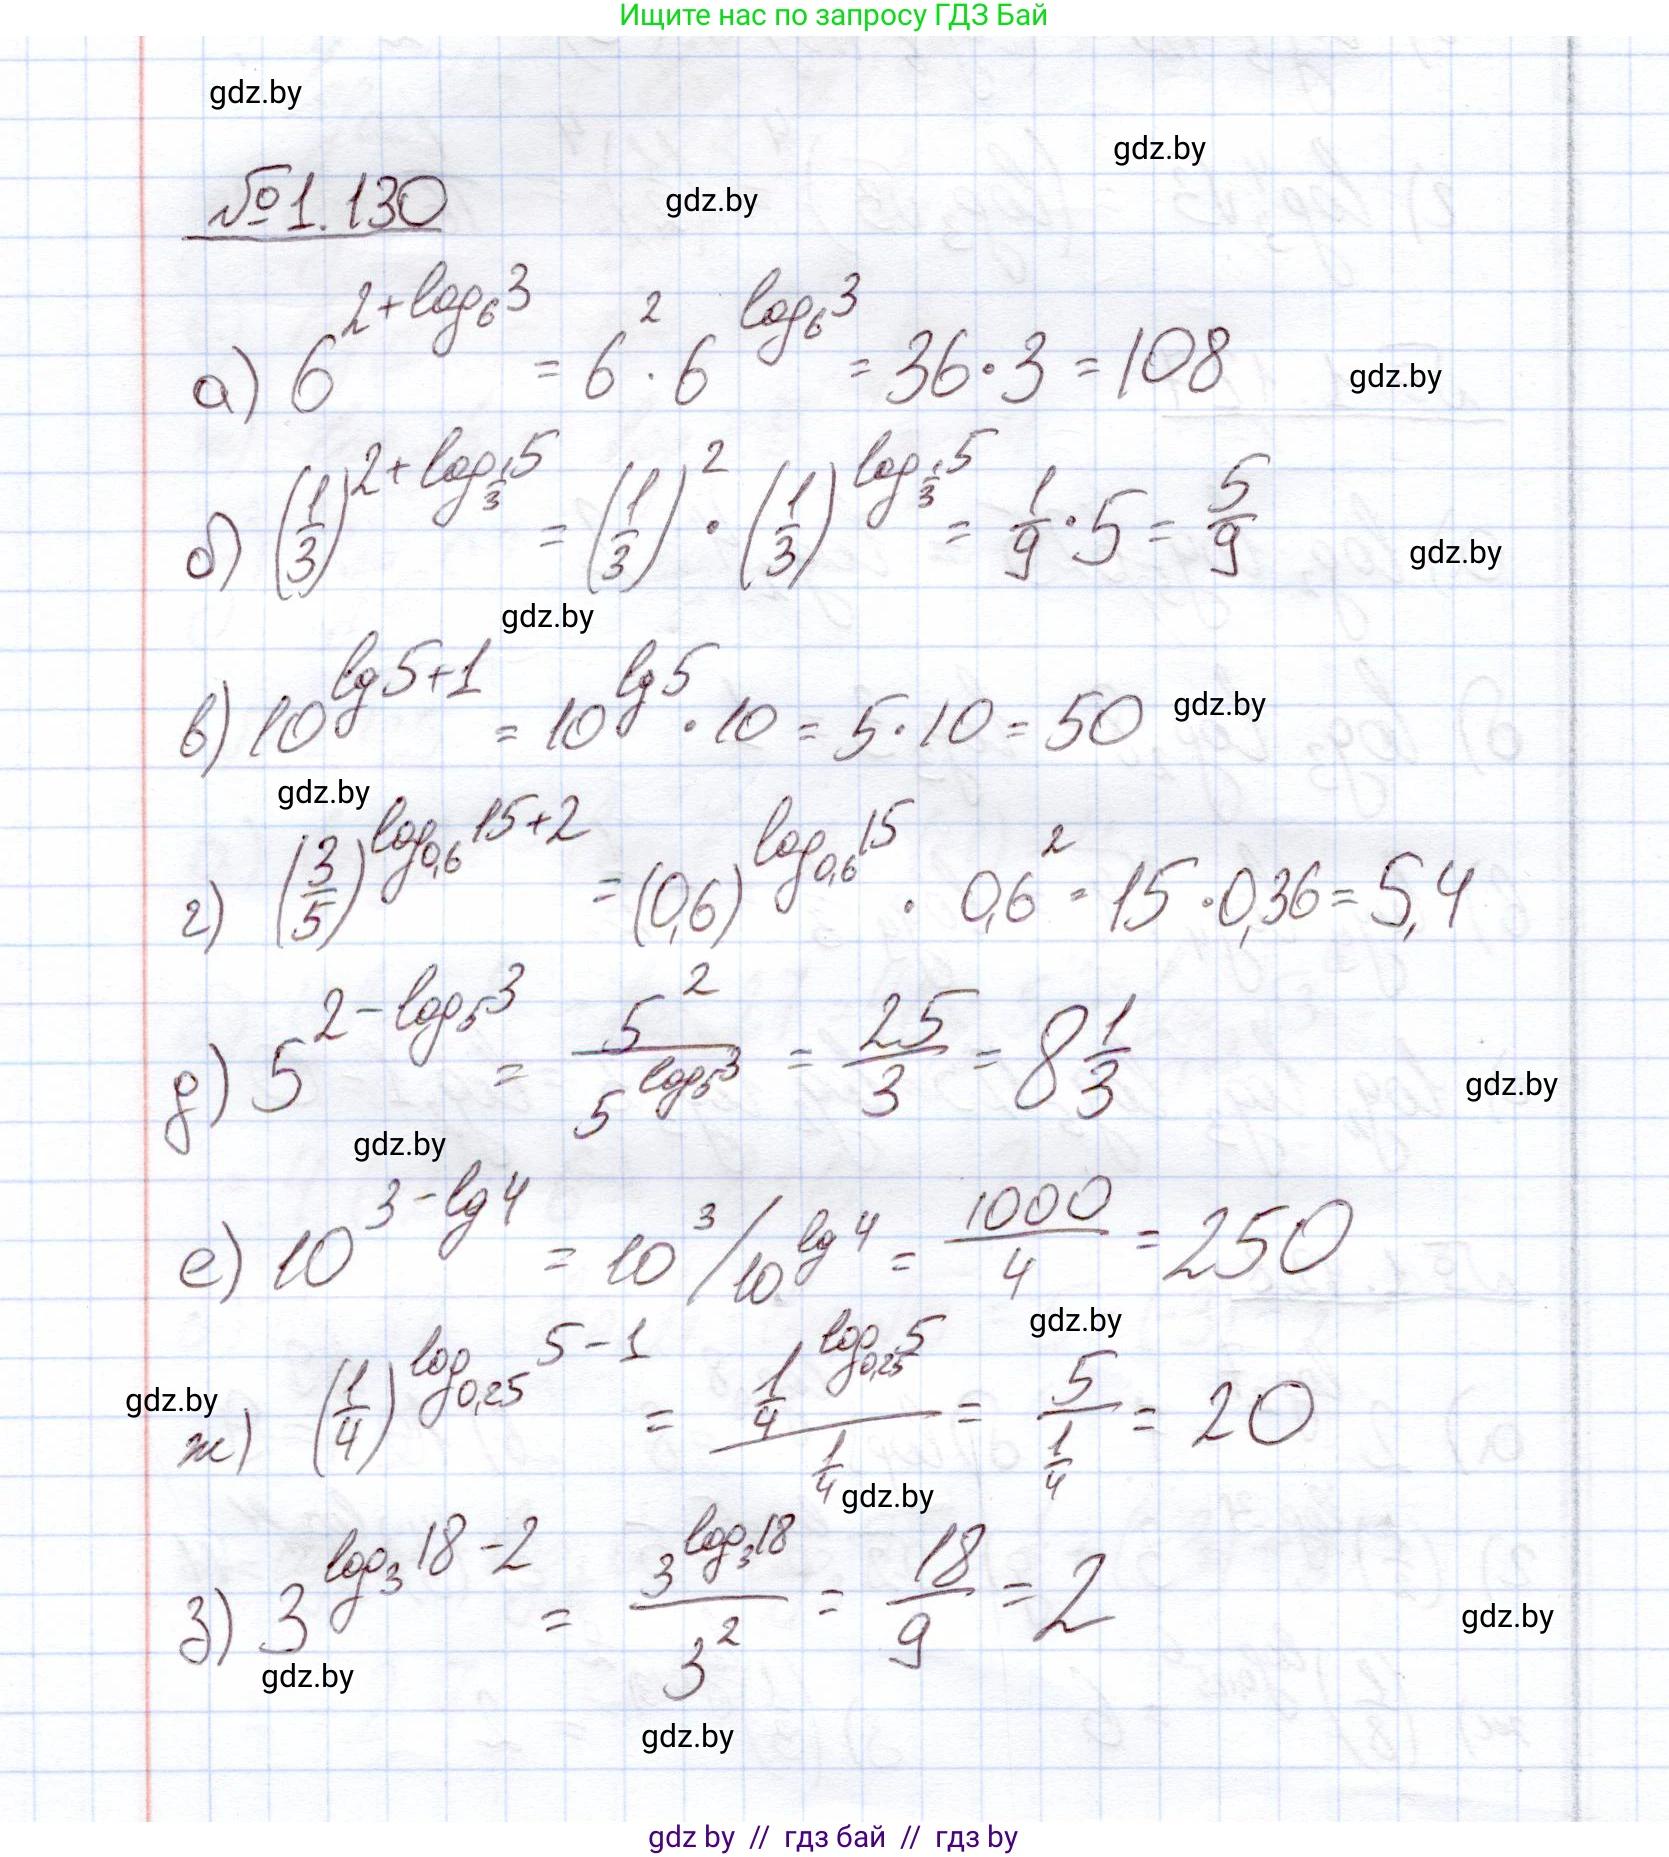 Ищите нас по запросу ГДЗ Бай
gdz.by
gdz.by
№1.130 gdz.by
а) 6^{2+log_6 3} = 6^2 · 6^{log_6 3} = 36 · 3 = 108 gdz.by
б) (1/3)^{2+log_{1/3} 5} = (1/3)^2 · (1/3)^{log_{1/3} 5} = 1/9 · 5 = 5/9 gdz.by
gdz.by
в) 10^{lg 5+1} = 10^{lg 5} · 10 = 5 · 10 = 50 gdz.by
gdz.by
г) (3/5)^{log_{0,6} 15+2} = (0,6)^{log_{0,6} 15} · 0,6^2 = 15 · 0,36 = 5,4
д) 5^{2-log_5 3} = 5^2/5^{log_5 3} = 25/3 = 8 1/3 gdz.by
gdz.by
е) 10^{3-lg 4} = 10^3/10^{lg 4} = 1000/4 = 250
gdz.by
gdz.by
ж) (1/4)^{log_{0,25} 5-1} = (1/4^{log_{0,25} 5})/(1/4) = 5/(1/4) = 20
gdz.by
з) 3^{log_3 18-2} = 3^{log_3 18}/3^2 = 18/9 = 2 gdz.by
gdz.by
gdz.by
gdz by // гдз бай // гдз by